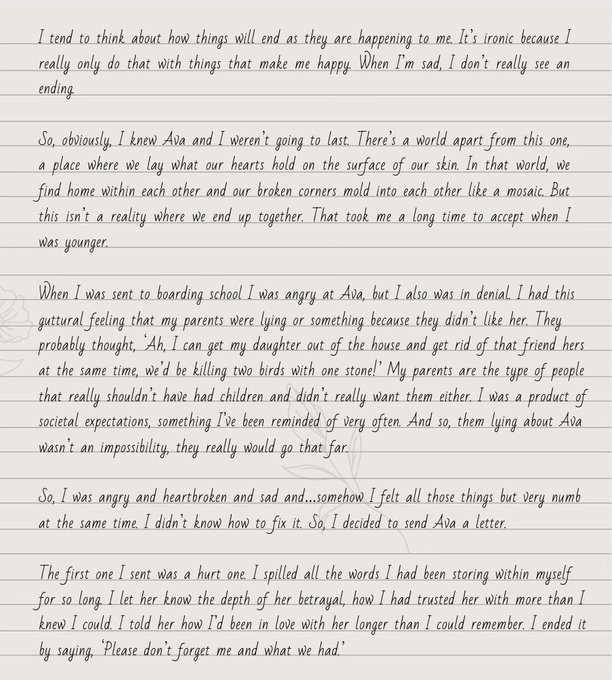 I tend to think about how things will end as they are happening to me. It's ironic because I
really only do that with things that make me happy. When I'm sad, I don't really see an
ending.
So, obviously, I knew Ava and I weren't going to last. There's a world apart from this one,
a place where we lay what our hearts hold on the surface of our skin. In that world, we
find home within each other and our broken corners mold into each other like a mosaic. But
this isn't a reality where we end up together. That took me a long time to accept when I
was younger.
When I was sent to boarding school I was angry at Ava, but I also was in denial. I had this
guttural feeling that my parents were lying or something because they didn't like her. They
probably thought, 'Ah, I can get my daughter out of the house and get rid of that friend hers
at the same time, we'd be killing two birds with one stone!' My parents are the type of people
that really shouldn't have had children and didn't really want them either. I was a product of
societal expectations, something I've been reminded of very often. And so, them lying about Ava
wasn't an impossibility, they really would go that far.
So, I was angry and heartbroken and sad and...somehow I felt all those things but very numb
at the same time. I didn't know how to fix it. So, I decided to send Ava a letter.
The first one I sent was a hurt one. I spilled all the words I had been storing within myself
for so long. I let her know the depth of her betrayal, how I had trusted her with more than I
knew I could. I told her how I'd been in love with her longer than I could remember. I ended it
by saying, 'Please don't forget me and what we had.'